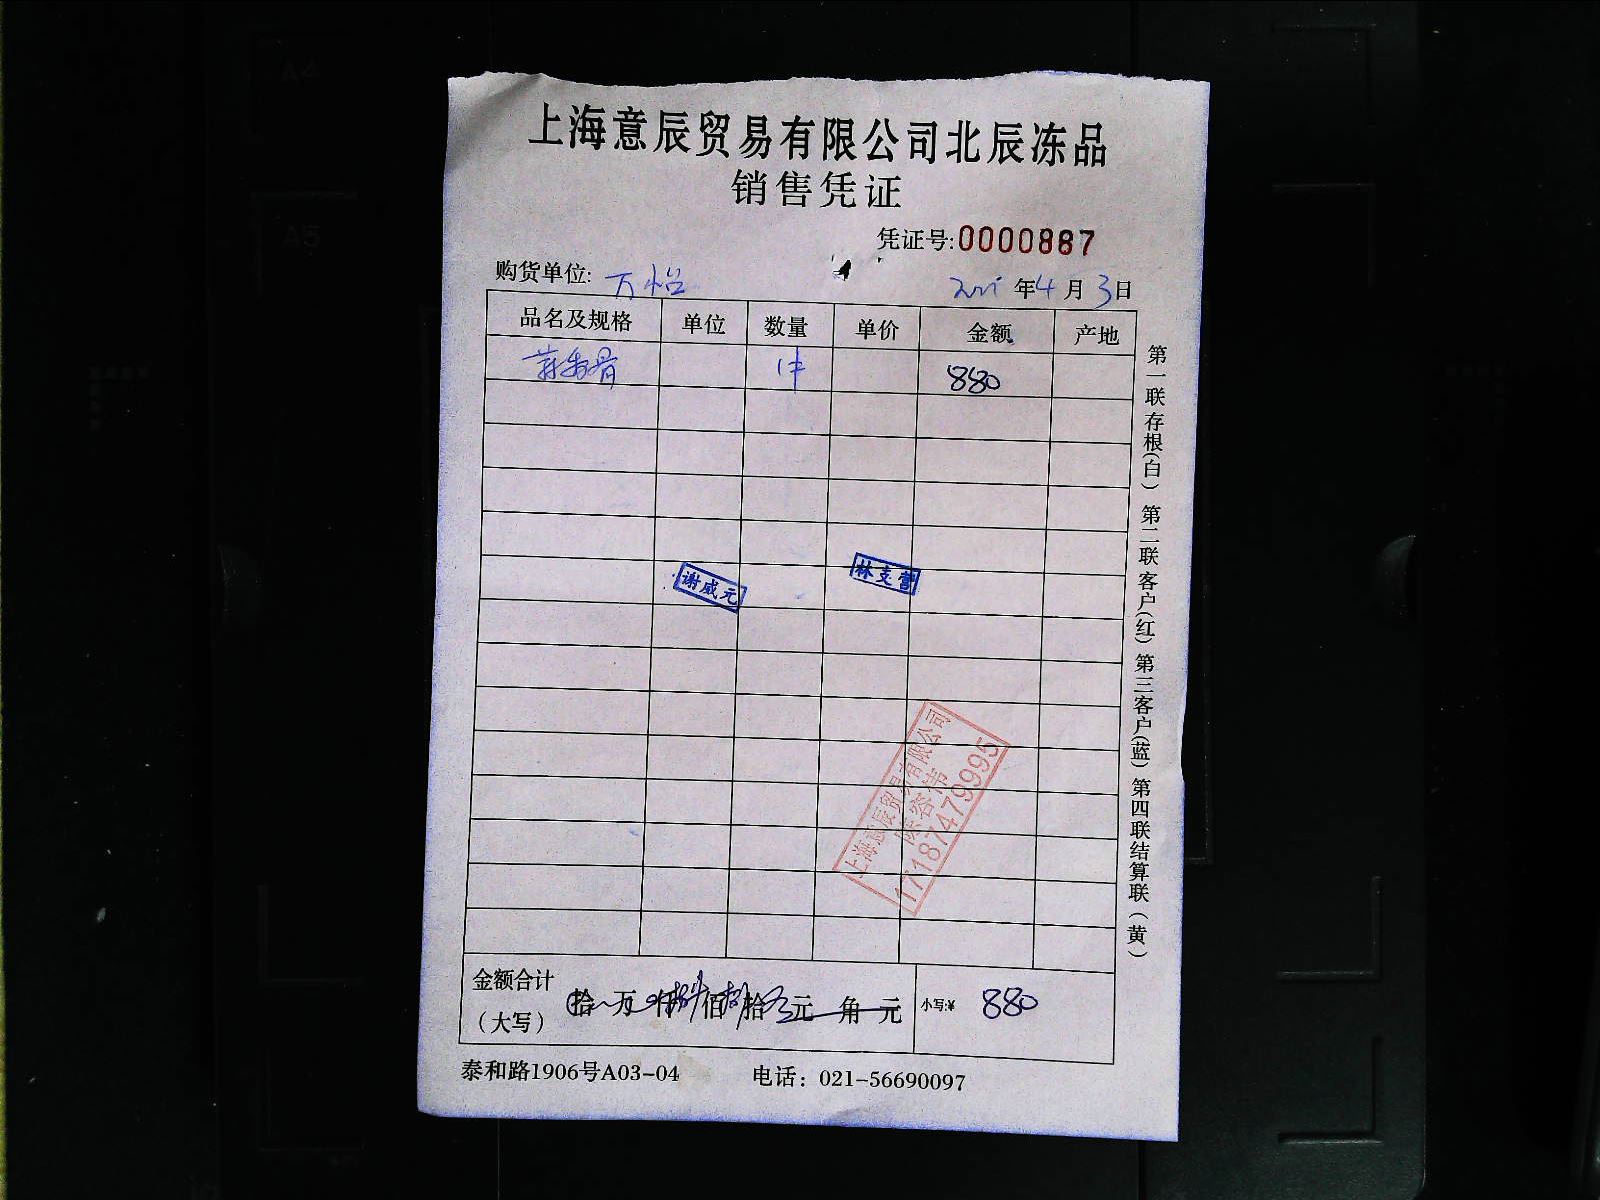 上海意辰贸易有限公司北辰冻品
销售凭证
凭证号:0000887
购货单位: 万怡 2021年4月3日
品名及规格 单位 数量 单价 金额 产地
1件 880
谢威元 林支营
上海意辰贸易有限公司
17187479995
金额合计(大写) 拾 万 仟 捌佰 捌拾 元 角 元 小写:¥ 880
泰和路1906号A03-04 电话:021-56690097
第一联存根(白) 第二联客户(红) 第三客户(蓝) 第四联结算联(黄)